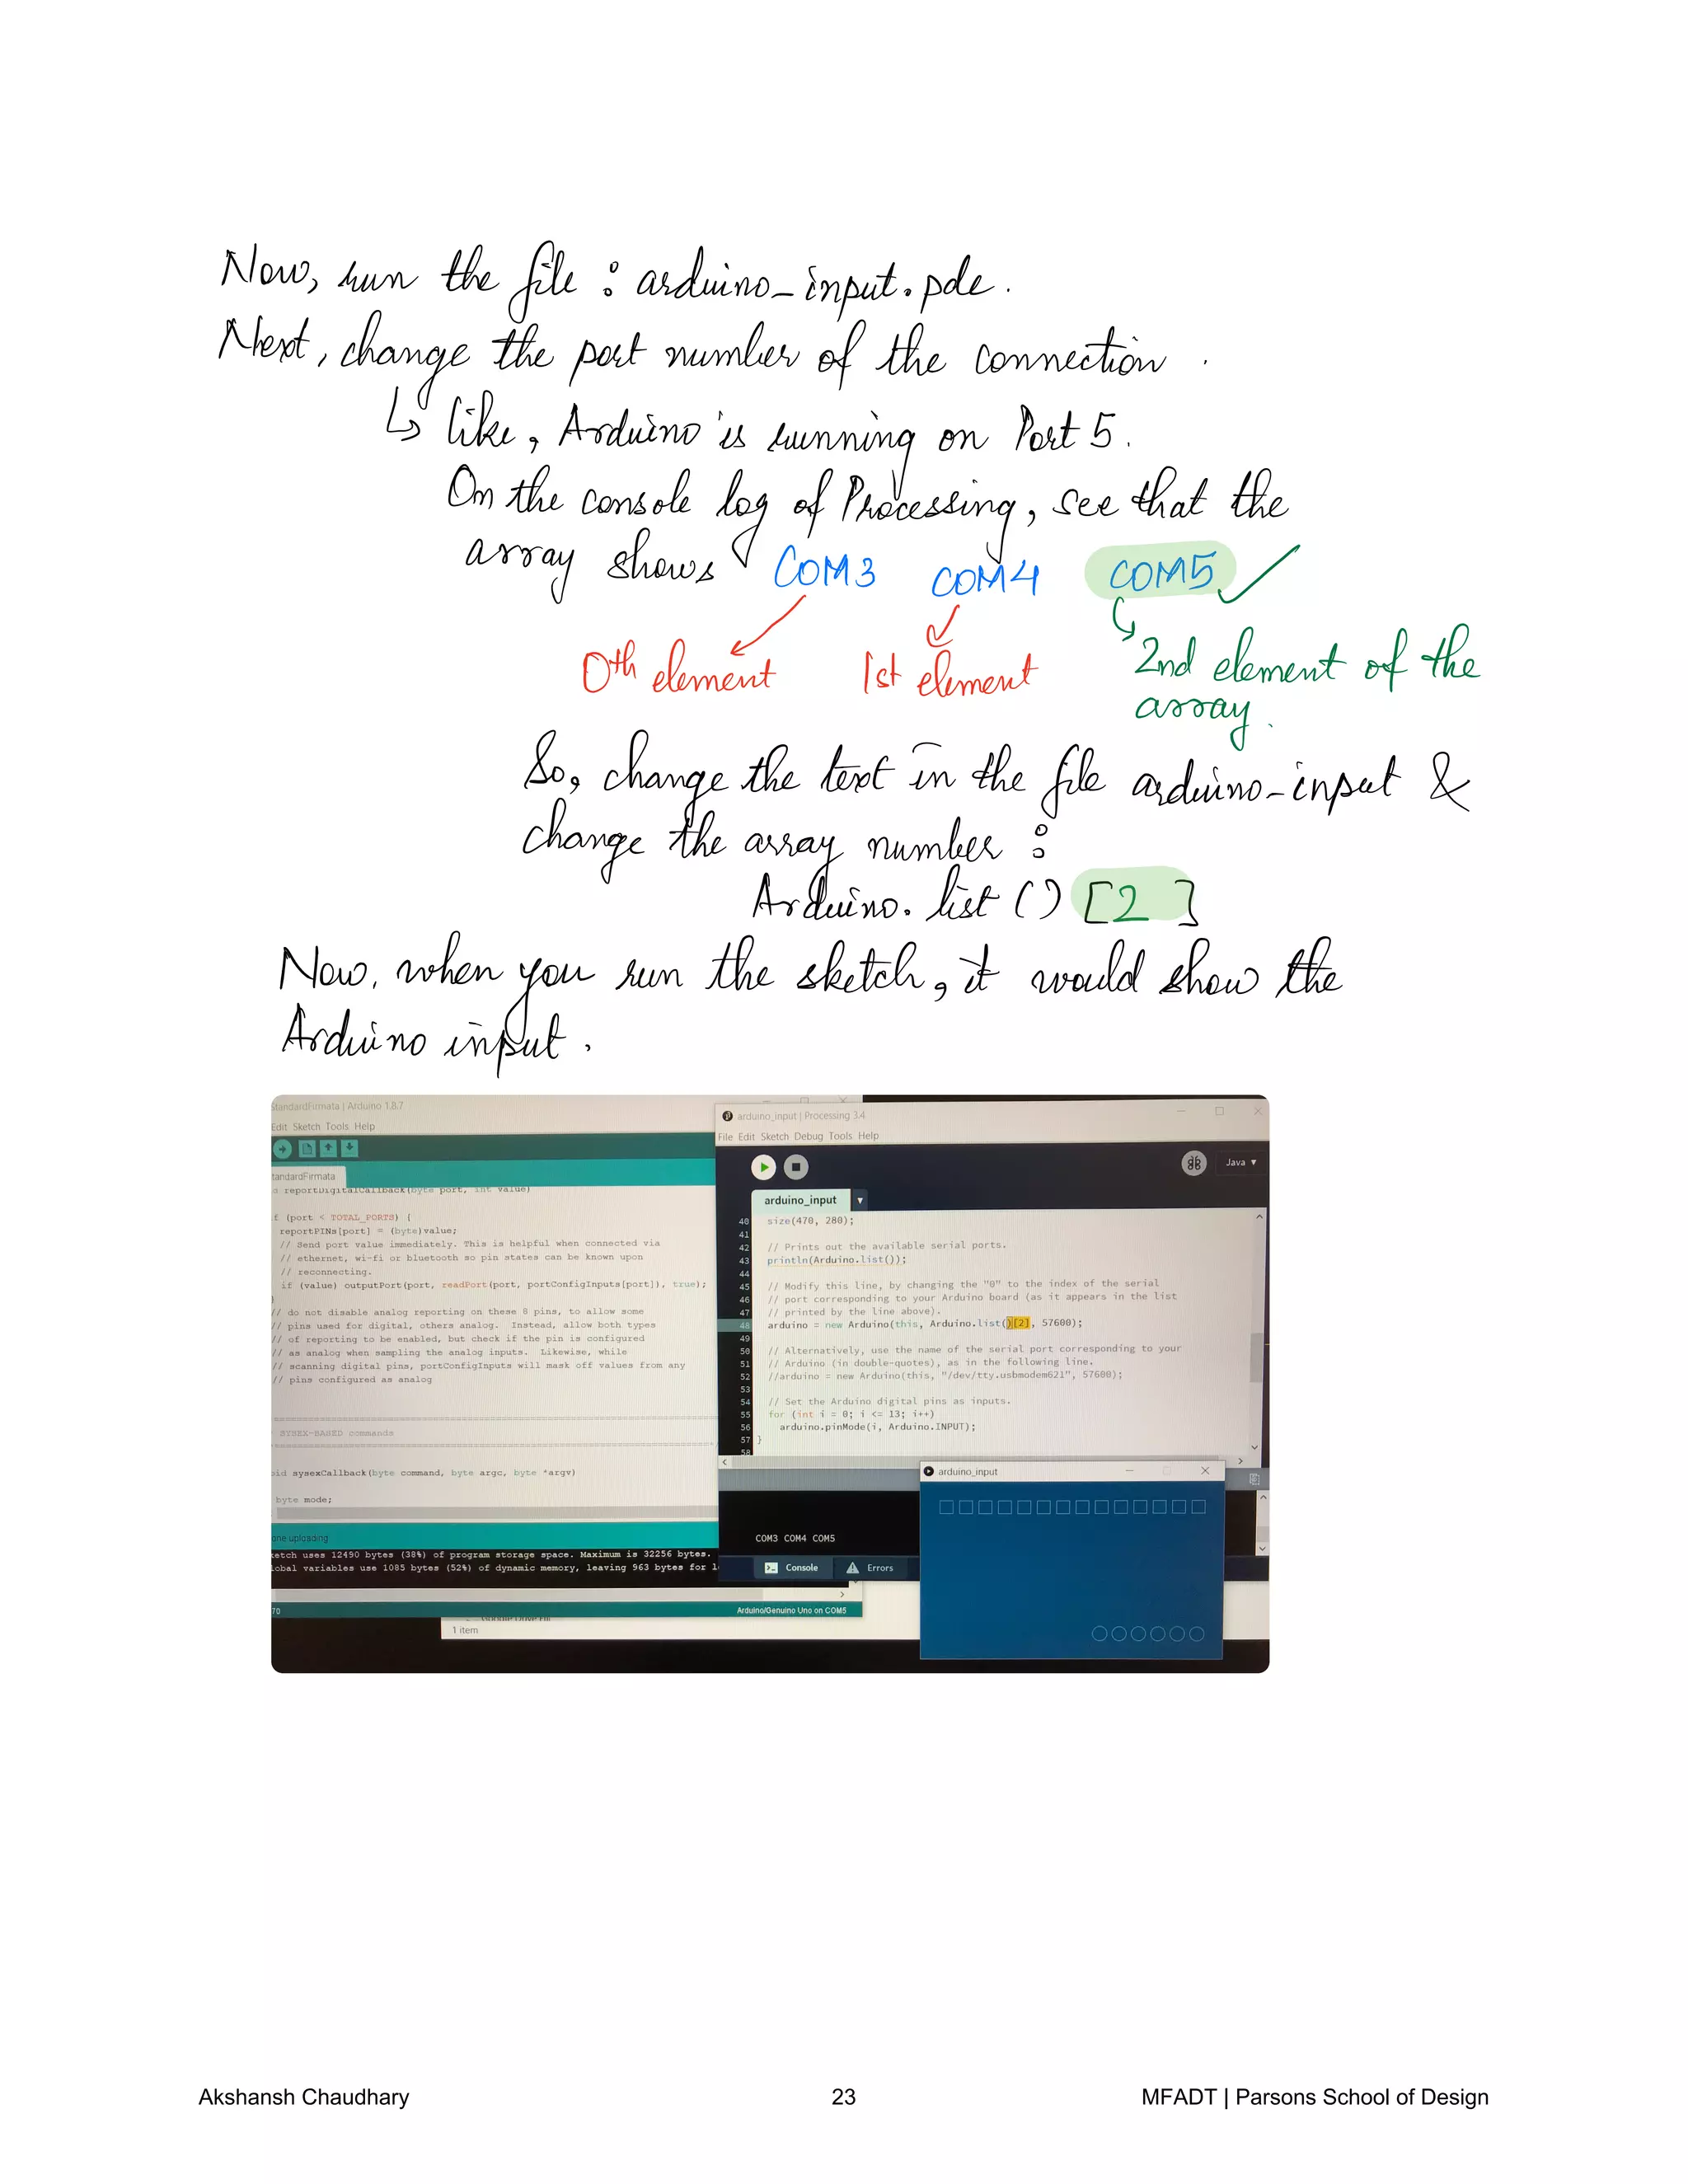 Now, run the file : arduino_input.pde.
Next, change the port number of the connection.
↳ like, Arduino is running on Port 5.
On the console log of Processing, see that the
array shows COM3 COM4 COM5 ✓
0th element 1st element 2nd element of the
array.
So, change the text in the file arduino_input &
change the array number :
Arduino.list () [2]
Now, when you run the sketch, it would show the
Arduino input.
StandardFirmata | Arduino 1.8.7
Edit Sketch Tools Help
tandardFirmata
reportDigitalCallback(byte port, int value)
f (port < TOTAL_PORTS) {
reportPINs[port] = (byte)value;
// Send port value immediately. This is helpful when connected via
// ethernet, wi-fi or bluetooth so pin states can be known upon
// reconnecting.
if (value) outputPort(port, readPort(port, portConfigInputs[port]), true);
}
// do not disable analog reporting on these 8 pins, to allow some
// pins used for digital, others analog. Instead, allow both types
// of reporting to be enabled, but check if the pin is configured
// as analog when sampling the analog inputs. Likewise, while
// scanning digital pins, portConfigInputs will mask off values from any
// pins configured as analog
SYSEX-BASED commands
oid sysexCallback(byte command, byte argc, byte *argv)
byte mode;
one uploading
ketch uses 12490 bytes (38%) of program storage space. Maximum is 32256 bytes.
lobal variables use 1085 bytes (52%) of dynamic memory, leaving 963 bytes for l
70
Arduino/Genuino Uno on COM5
1 item
arduino_input | Processing 3.4
File Edit Sketch Debug Tools Help
Java ▼
arduino_input ▼
40 size(470, 280);
41
42 // Prints out the available serial ports.
43 println(Arduino.list());
44
45 // Modify this line, by changing the "0" to the index of the serial
46 // port corresponding to your Arduino board (as it appears in the list
47 // printed by the line above).
48 arduino = new Arduino(this, Arduino.list()[2], 57600);
49
50 // Alternatively, use the name of the serial port corresponding to your
51 // Arduino (in double-quotes), as in the following line.
52 //arduino = new Arduino(this, "/dev/tty.usbmodem621", 57600);
53
54 // Set the Arduino digital pins as inputs.
55 for (int i = 0; i <= 13; i++)
56 arduino.pinMode(i, Arduino.INPUT);
57 }
58
COM3 COM4 COM5
Console Errors
arduino_input
Akshansh Chaudhary 23 MFADT | Parsons School of Design